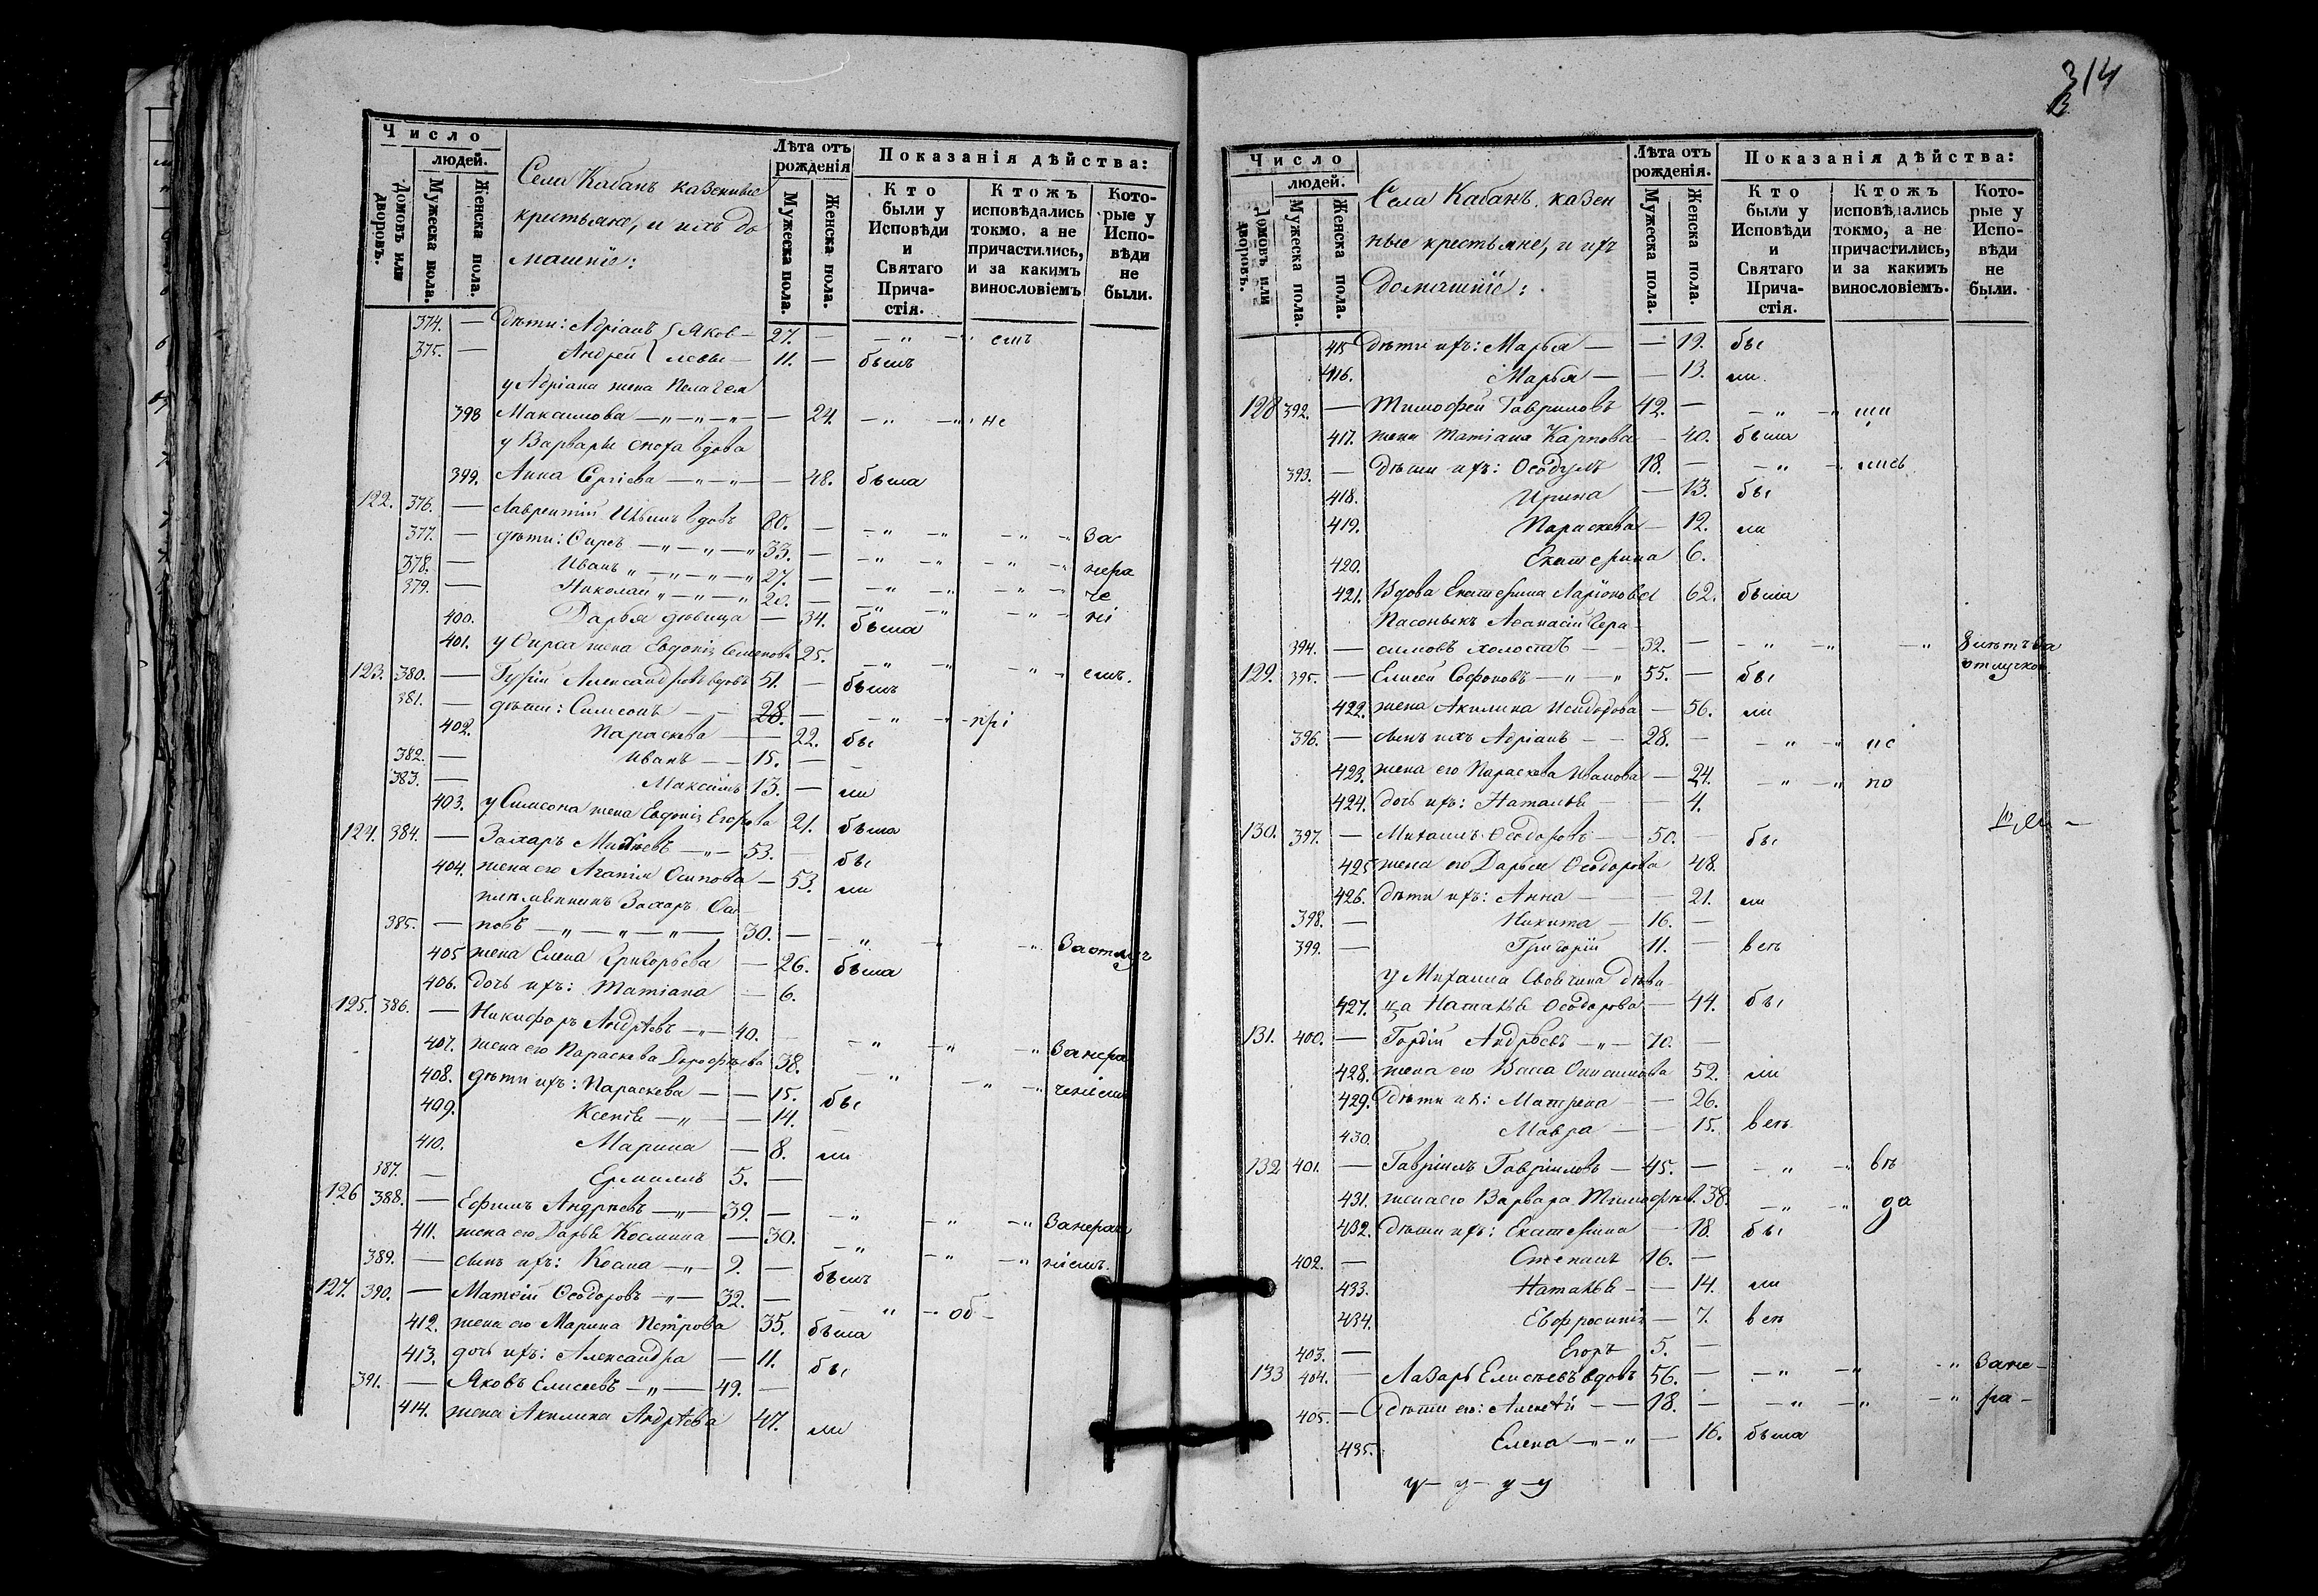 Число
людей.
Домовъ или дворовъ.
Мужеска пола.
Женска пола.
Села Кабанъ казенные
крестьяне, и ихъ до
машніе:
Лѣта отъ рожденія
Мужеска пола.
Женска пола.
Показанія дѣйства:
Кто были у Исповѣди и Святаго Причастія.
Ктожъ исповѣдались токмо, а не причастились, и за какимъ винословіемъ
Которые у Исповѣди не были.
374. — Дѣти: Адріанъ } Яков — 27. — — „ — „ емъ
375. — Андрей } левы — 11. — былъ
у Адріана жена Пелагея
398 Максимова — „ — „ — „ — — 24. — „ — „ не
у Варвары сноха вдова
399. Анна Сергіева — „ — „ — — 48. была
122. 376. — Лаврентій вдовъ 80. — — „ — — „ — За
377. — дѣти: Фирсъ — „ — „ — „ 33. — — „ — — „ — нера
378. — Иванъ „ — „ — „ — „ 27. — — „ — — „ — че
379. — Николай „ — „ — „ 20. — — „ — — „ — ні
400. Дарья дѣвица — 34. была
401. у Фирса жена Евдокія Семенова 25. — „ — — „ — емъ.
123. 380. — Гурій Александровъ вдовъ 51. — былъ
381. — дѣти: Симеонъ — — 28. — — „ — прі
402. Параскева — — 22. бы
382. Иванъ — — 15. — —
383. — Максимъ 13. — ли
403. у Симеона жена Евдокія Егорова 21. была
124. 384. — Захаръ Михѣевъ — „ — 53. — бы
404. жена его Агапія Осипова — 53. ли
племянникъ Захаръ Оси
385. — повъ — „ — „ — „ — 30. — — „ — — „ За отлуч
405 жена Елена Григорьева — 26. была
406. дочь ихъ: Татіана — 6.
125. 386. — Никифоръ Андрѣевъ — „ — 40. — — „ — „ — „ За нера
407. жена его Параскева Дорофѣева 38. — „ — „ — „ ченіемъ
408. дѣти ихъ: Параскева — — 15. бы
409. Ксенія — „ — — 14. —
410. Марина — 8. ли
387. — Ермилъ 5. —
126 388. — Ефимъ Андрѣевъ — „ — 39. — — „ — „ — „ За нера
411. жена его Дарья Космина — 30. — „ — „ — „ ніемъ.
389. — сынъ ихъ: Косма — „ — 2. — былъ
127. 390. — Матвій Ѳеодоровъ — „ — 32. — — „ — об —
412. жена его Марина Петрова 35. была
413. дочь ихъ: Александра — 11. бы
391. — Яковъ Елисеевъ — „ — 49. —
414. жена Акилина Андрѣева 47. ли
314
Число
людей.
Домовъ или дворовъ.
Мужеска пола.
Женска пола.
Села Кабанъ, казен
ные крестьяне, и ихъ
домашніе:
Лѣта отъ рожденія.
Мужеска пола.
Женска пола.
Показанія дѣйства:
Кто были у Исповѣди и Святаго Причастія.
Ктожъ исповѣдались токмо, а не причастились, и за какимъ винословіемъ.
Которые у Исповѣди не были.
415 дѣти ихъ: Марья — — 19. бы
416. Марья — — 13. ли
128 392. — Тимофей Гавриловъ 42. — — „ — „
417. жена Татіана Карпова — 40. была
393. — дѣти ихъ: Ѳеодулъ 18. — — „ — „
418. Ирина — 13. бы
419. Параскева — 12. ли
420. Екатерина 6.
421. Вдова Екатерина Ларіонова 62. была
Пасонькъ Аѳанасій Гера —
394. — симовъ холостъ — — 32. — — „ — „ — „ отлучкою
129. 395. — Елисей Софоновъ — „ — „ 55. — бы
422. жена Акилина Исидорова — 56. ли
396. — сынъ ихъ Адріанъ — — 28. — — „ — „ не
423. жена его Параскева Иванова — 24. — „ — „ по
424. дочь ихъ: Наталья — — 4.
130. 397. — Михаилъ Ѳеодоровъ — — 50. — бы
425 жена его Дарья Ѳеодорова 48.
426. дѣти ихъ: Анна — — — 21. ли
398. — Никита — 16. —
399. — Григорій 11. — всѣ
у Михаила дѣви
427. ца Наталья Ѳеодорова — 44. бы
131. 400. — Гордій Андрѣевъ — „ — 70. —
428. жена его Васса 52. ли
429. дѣти ихъ: Матрена — — 26.
430. Мавра — — 15. всѣ
132 401. — Гавріилъ Гавріиловъ — 45. — — „ — „
431. жена его Варвара Тимофѣев. 38. — „ — „ да
432. дѣти ихъ: Екатерина — 18. бы
402. — Степанъ 16. —
433. Наталья — — 14. ли
434. Евфросинія — 7. всѣ
403. — Егоръ 5. —
133 404. — Лазарь Елисѣевъ вдовъ 56. — — „ — „ — „ За не —
405. — дѣти его: Алексѣй — — 18. — — „ — „ — „ ра —
435. Елена — „ — „ — 16. была